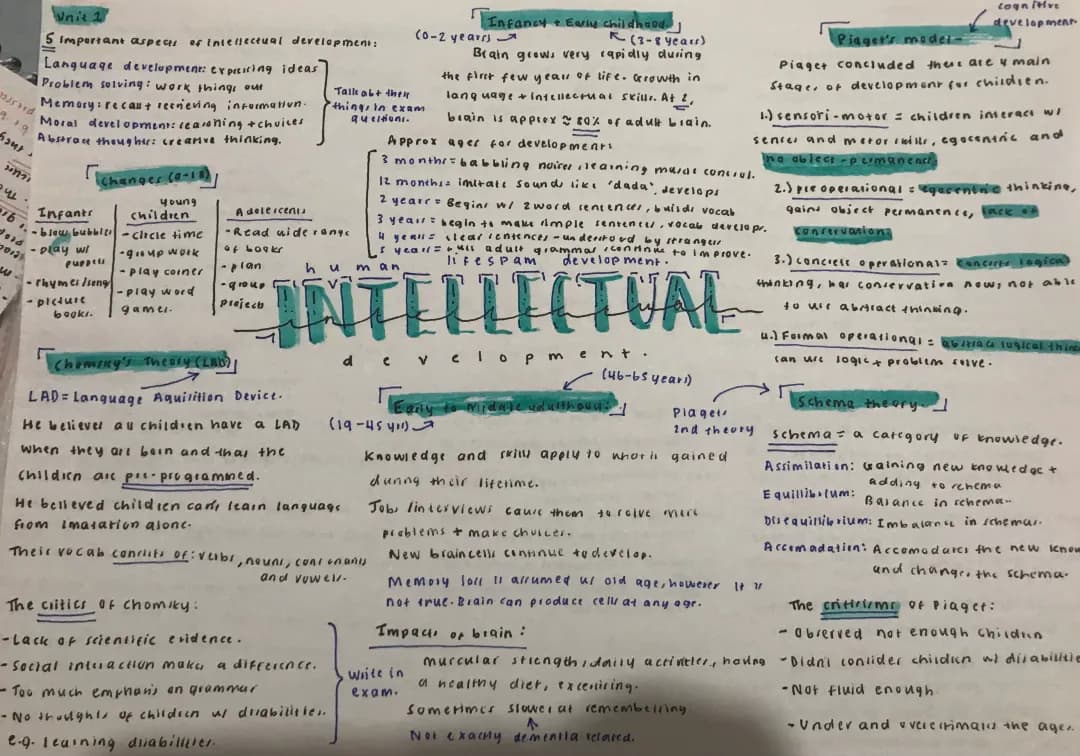 Unit 1
5 Important aspects of Intellectual development:
Language development: expressing ideas
Problem solving: work things out
Memory: recall + retrieving information.
Moral development: reasoning + choices
Abstract thoughts: creative thinking.
Talk abt these
things in exam
questions.
Changes (0-18)
Infants
- blow bubbles
- play w/
puppets
- rhymes/song
- picture
books.
young
children
- circle time
- group work
- play corner
- play word
games.
Adolescents
- Read wide range
of books
- plan
- group
projects
Infancy + Early childhood.
(0-2 years)
(3-8 years)
Brain grows very rapidly during
the first few years of life. Growth in
language + intellectual skills. At 2,
brain is approx ≈ 80% of adult brain.
Approx ages for development:
3 months = babbling noises, learning muscle control.
12 months = imitate sounds like 'dada', develops
2 years = Begins w/ 2 word sentences, builds vocab
3 years = begin to make simple sentences, vocab develops.
4 years = clear sentences - understood by strangers
5 years = adult grammar, continue to improve.
human
lifespam development.
INTELLECTUAL
intellectual
development.
cognitive
development
Piaget's model -
Piaget concluded there are 4 main
stages of development for children.
1.) sensori-motor = children interact w/
senses and motor skills, egocentric and
no object-permanence
2.) pre operational = egocentric thinking,
gains object permanence, lack of
conservation.
3.) concrete operational = concrete logical
thinking, has conservation now, not able
to use abstract thinking.
4.) Formal operational = abstract logical think
can use logic + problem solve.
Chomsky's Theory (LAD)
LAD = Language Aquisition Device.
He believed all children have a LAD
when they are born and that the
children are pre-programmed.
He believed children can't learn language
from imatation alone.
Their vocab consists of: verbs, nouns, consonants
and vowels.
The critics of Chomsky:
- Lack of scientific evidence.
- Social interaction makes a difference.
- Too much emphasis on grammar
- No thoughts of children w/ disabilities.
e.g. learning disabilities.
Write in
exam.
(46-65 years)
Early to middle adulthood:
(19-45 yrs)
Knowledge and skills apply to what is gained
during their lifetime.
Jobs/interviews cause them to solve more
problems + make choices.
New braincells continue to develop.
Memory loss is assumed w/ old age, however it is
not true. Brain can produce cells at any age.
Impacts of brain:
muscular strength, daily activities, having
a healthy diet, excersiring.
Sometimes slower at remembering
Not exactly dementia related.
Piagets
2nd theory
Schema theory
Schema = a category of knowledge.
Assimilation: Gaining new knowledge +
adding to schema
Equillibrium: Balance in schema.
Disequillibrium: Imbalance in schemas.
Accomadation: Accomodates the new know
and changes the schema.
The criticisms of Piaget:
- Observed not enough children
- Didn't consider children w/ disabilitie
- Not fluid enough
- Under and overestimates the ages.